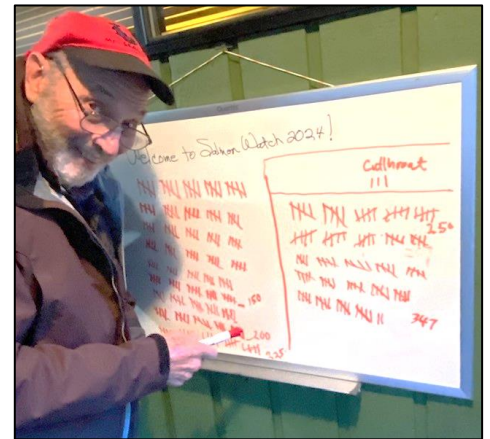 Welcome to Salmon Watch 2024!
Cutthroat
III
250
150
200
225
347